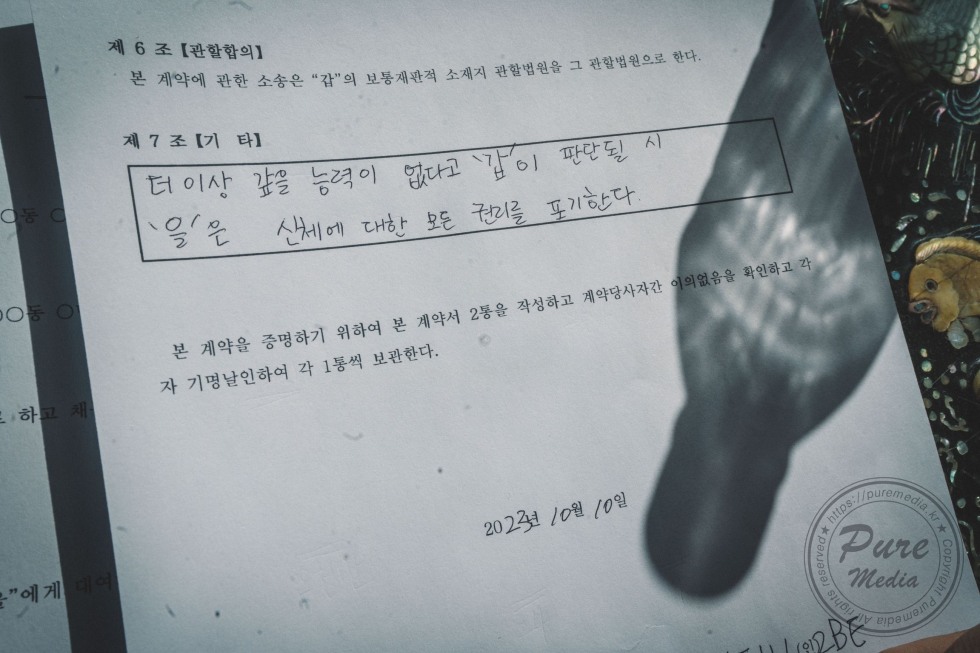 제 6 조 【관할합의】
본 계약에 관한 소송은 “갑”의 보통재관적 소재지 관할법원을 그 관할법원으로 한다.
제 7 조 【기 타】
더 이상 갚을 능력이 없다고 '갑'이 판단될 시
'을'은 신체에 대한 모든 권리를 포기한다.
본 계약을 증명하기 위하여 본 계약서 2통을 작성하고 계약당사자간 이의없음을 확인하고 각
자 기명날인하여 각 1통씩 보관한다.
2023년 10월 10일
○동
○○동
하고
"에게 대여
https://puremedia.kr ★ Copyright Puremedia All rights reserved ★
Pure
Media